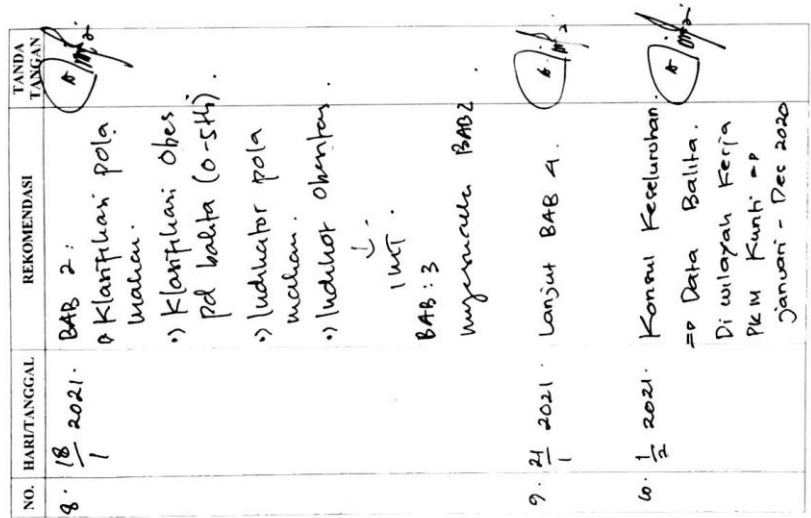 NO. HARI/TANGGAL REKOMENDASI TANDA TANGAN
8. 18/1 2021. BAB 2:
•) Klarifikasi pola
makan.
•) Klarifikasi Obes
pd balita (0-5th).
•) Indikator pola
makan.
•) Indikator Obesitas.
↓
IMT.
BAB: 3
menyesuaikan BAB2.
9. 21/1 2021 Lanjut BAB 4.
10. 1/2 2021. Konsul Keseluruhan.
=> Data Balita.
Di wilayah Kerja
PKM Kunti =>
januari - Des 2020